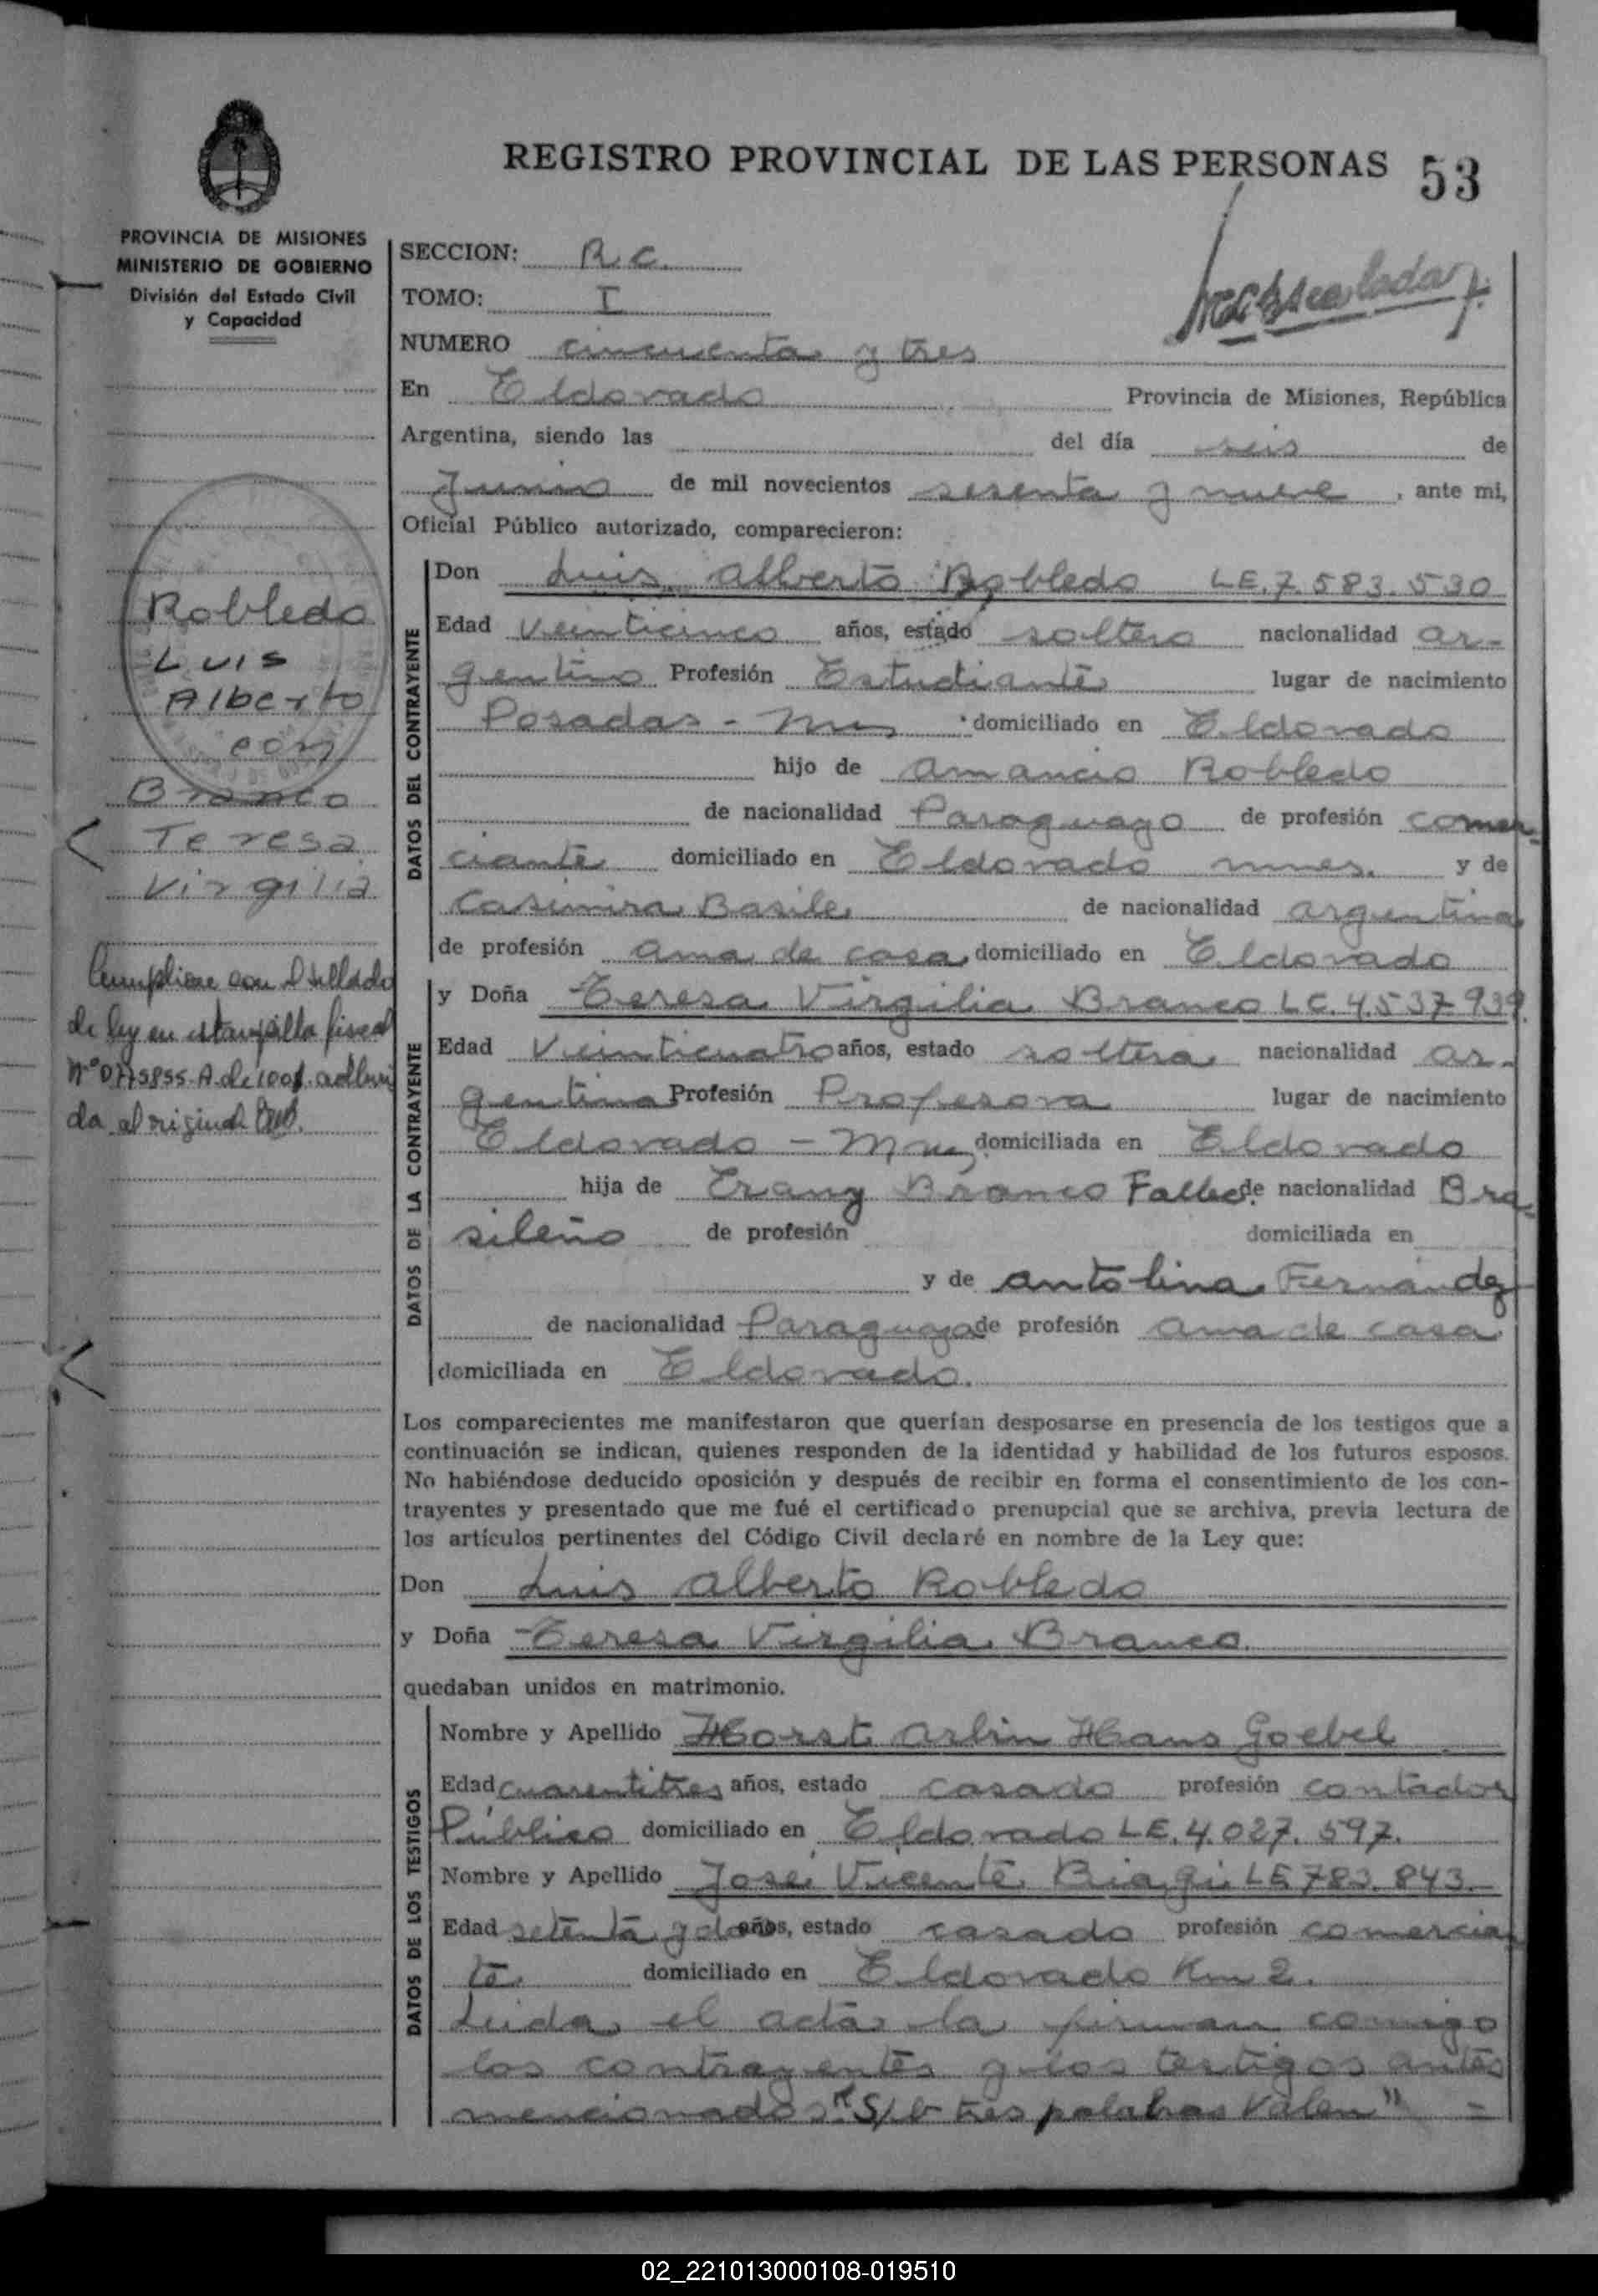 REGISTRO PROVINCIAL DE LAS PERSONAS 53
PROVINCIA DE MISIONES
MINISTERIO DE GOBIERNO
División del Estado Civil
y Capacidad
SECCION: R.C.
TOMO: I
NUMERO cincuenta y tres
En Eldorado Provincia de Misiones, República
Argentina, siendo las del día seis de
Junio de mil novecientos sesenta y nueve, ante mi,
Oficial Público autorizado, comparecieron:
Robledo
Luis
Alberto
con
Branco
Teresa
Virgilia
Cumpliose con el sellado
de ley en estampilla fiscal
da al original
DATOS DEL CONTRAYENTE
Don Luis Alberto Robledo LE. 7.583.530
Edad Veinticinco años, estado soltero nacionalidad ar-
gentino Profesión Estudiante lugar de nacimiento
Posadas - Mnes domiciliado en Eldorado
hijo de Amancio Robledo
de nacionalidad Paraguayo de profesión comer-
ciante domiciliado en Eldorado mnes. y de
Casimira Basile de nacionalidad argentina
de profesión ama de casa domiciliado en Eldorado
DATOS DE LA CONTRAYENTE
y Doña Teresa Virgilia Branco LC. 4.537.939.
Edad Veinticuatro años, estado soltera nacionalidad ar-
gentina Profesión Profesora lugar de nacimiento
Eldorado - Mnes domiciliada en Eldorado
hija de Erany Branco Fallec. de nacionalidad Bra-
sileño de profesión domiciliada en
y de Antolina Fernández
de nacionalidad Paraguaya de profesión ama de casa
domiciliada en Eldorado.
Los comparecientes me manifestaron que querían desposarse en presencia de los testigos que a
continuación se indican, quienes responden de la identidad y habilidad de los futuros esposos.
No habiéndose deducido oposición y después de recibir en forma el consentimiento de los con-
trayentes y presentado que me fué el certificado prenupcial que se archiva, previa lectura de
los artículos pertinentes del Código Civil declaré en nombre de la Ley que:
Don Luis Alberto Robledo
y Doña Teresa Virgilia Branco.
quedaban unidos en matrimonio.
DATOS DE LOS TESTIGOS
Nombre y Apellido Horst Arlin Hans Goebel
Edad cuarentitres años, estado casado profesión contador
Público domiciliado en Eldorado LE. 4.027.597.
Nombre y Apellido José Vicente Biagi LE 783.843.
Edad setenta y dos años, estado casado profesión comercian
te. domiciliado en Eldorado Km 2.
Leida el acta la firman comigo
los contrayentes y los testigos antes
mencionados. "S/b tres palabras Valen" =
02_221013000108-019510